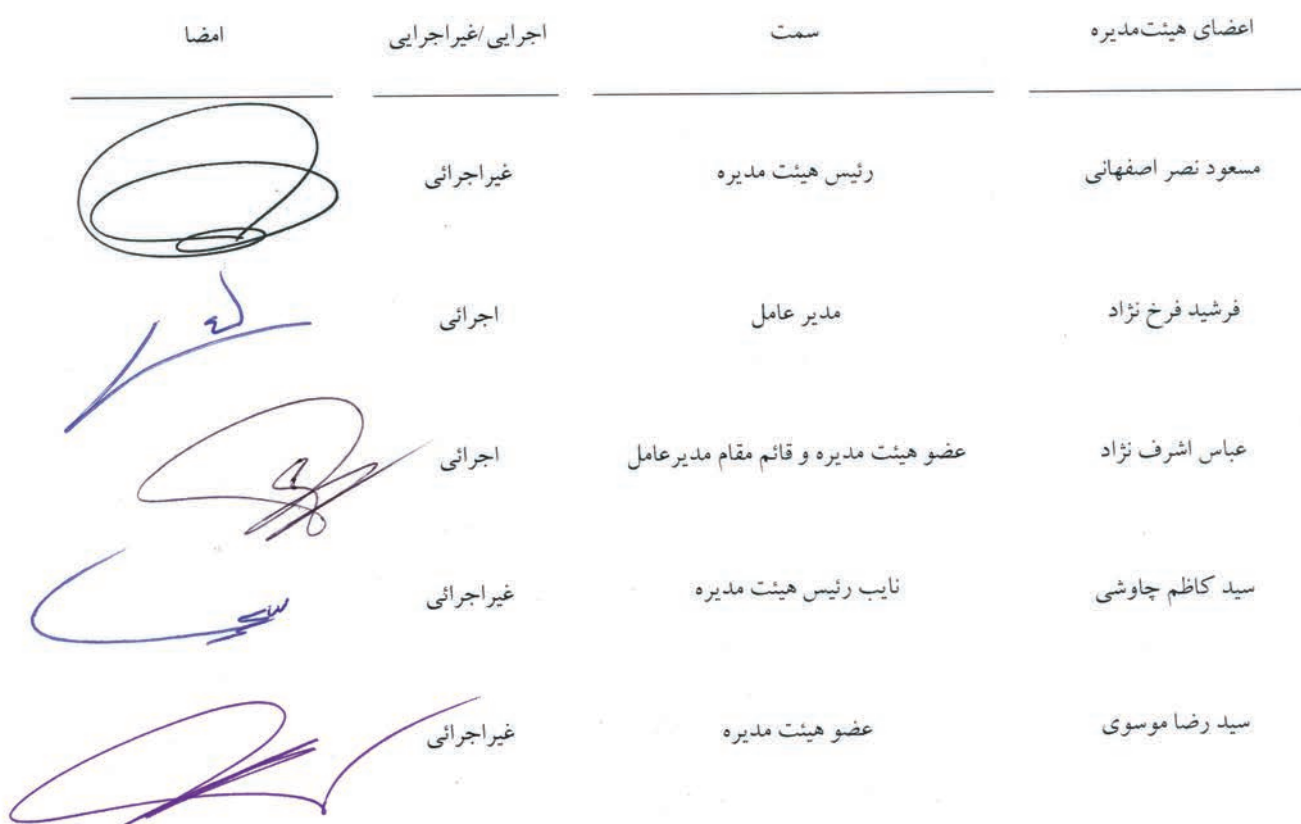 اعضای هیئت‌مدیره سمت اجرایی/غیراجرایی امضا
مسعود نصر اصفهانی رئیس هیئت مدیره غیراجرائی
فرشید فرخ نژاد مدیر عامل اجرائی
عباس اشرف نژاد عضو هیئت مدیره و قائم مقام مدیرعامل اجرائی
سید کاظم چاوشی نایب رئیس هیئت مدیره غیراجرائی
سید رضا موسوی عضو هیئت مدیره غیراجرائی